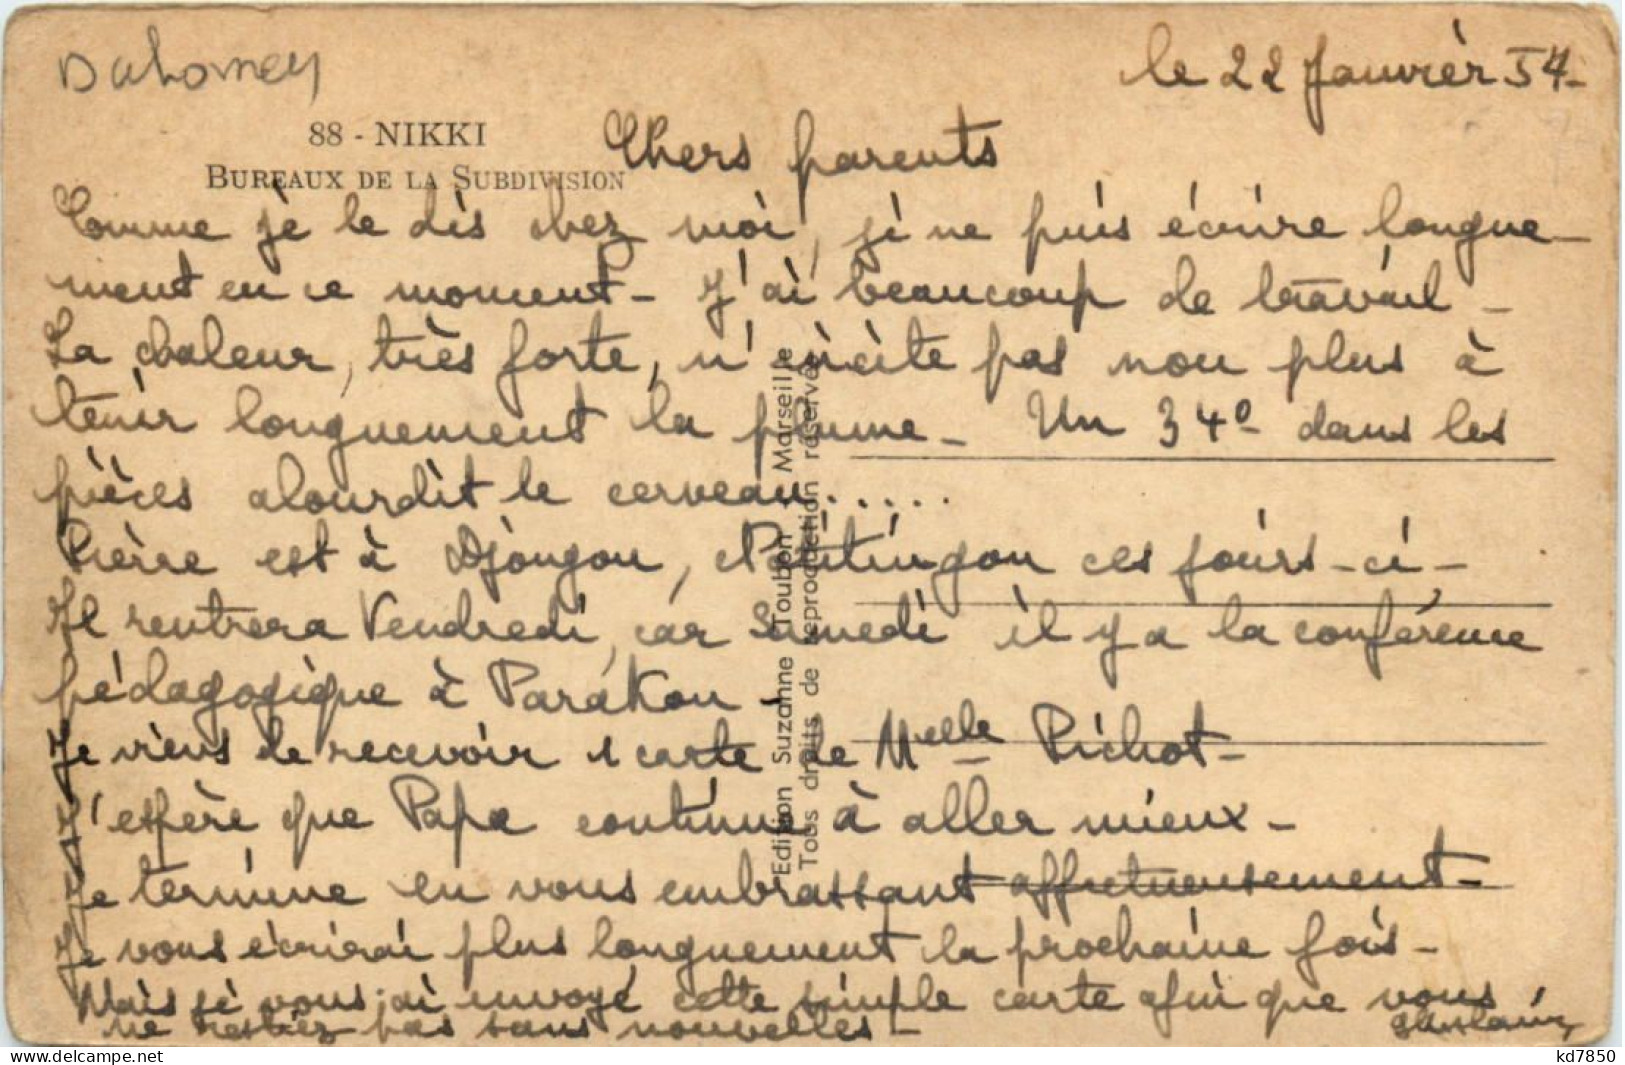 Dahomey
le 22 Janvièr 54-
88 - NIKKI
BUREAUX DE LA SUBDIVISION
Chers parents
Comme je le dis chez moi, je ne puis écrire longue-
ment en ce moment - J'ai beaucoup de travail -
La chaleur, très forte, n'incite pas non plus à
tenir longuement la plume - Un 34° dans les
pièces alourdit le cerveau.....
Pierre est à Djougou, Natitingou ces jours-ci -
Il rentrera Vendredi, car Samedi il y a la conférence
pédagogique à Parakou -
Je viens de recevoir 1 carte de Melle Pichot -
J'espère que Papa continue à aller mieux -
Je termine en vous embrassant affectueusement -
Je vous écrirai plus longuement la prochaine fois -
Mais je vous ai envoyé cette simple carte afin que vous
ne restiez pas sans nouvelles -
Ghislaine
Edition Suzanne Toubon - Marseille
Tous droits de reproduction réservés
kd7850